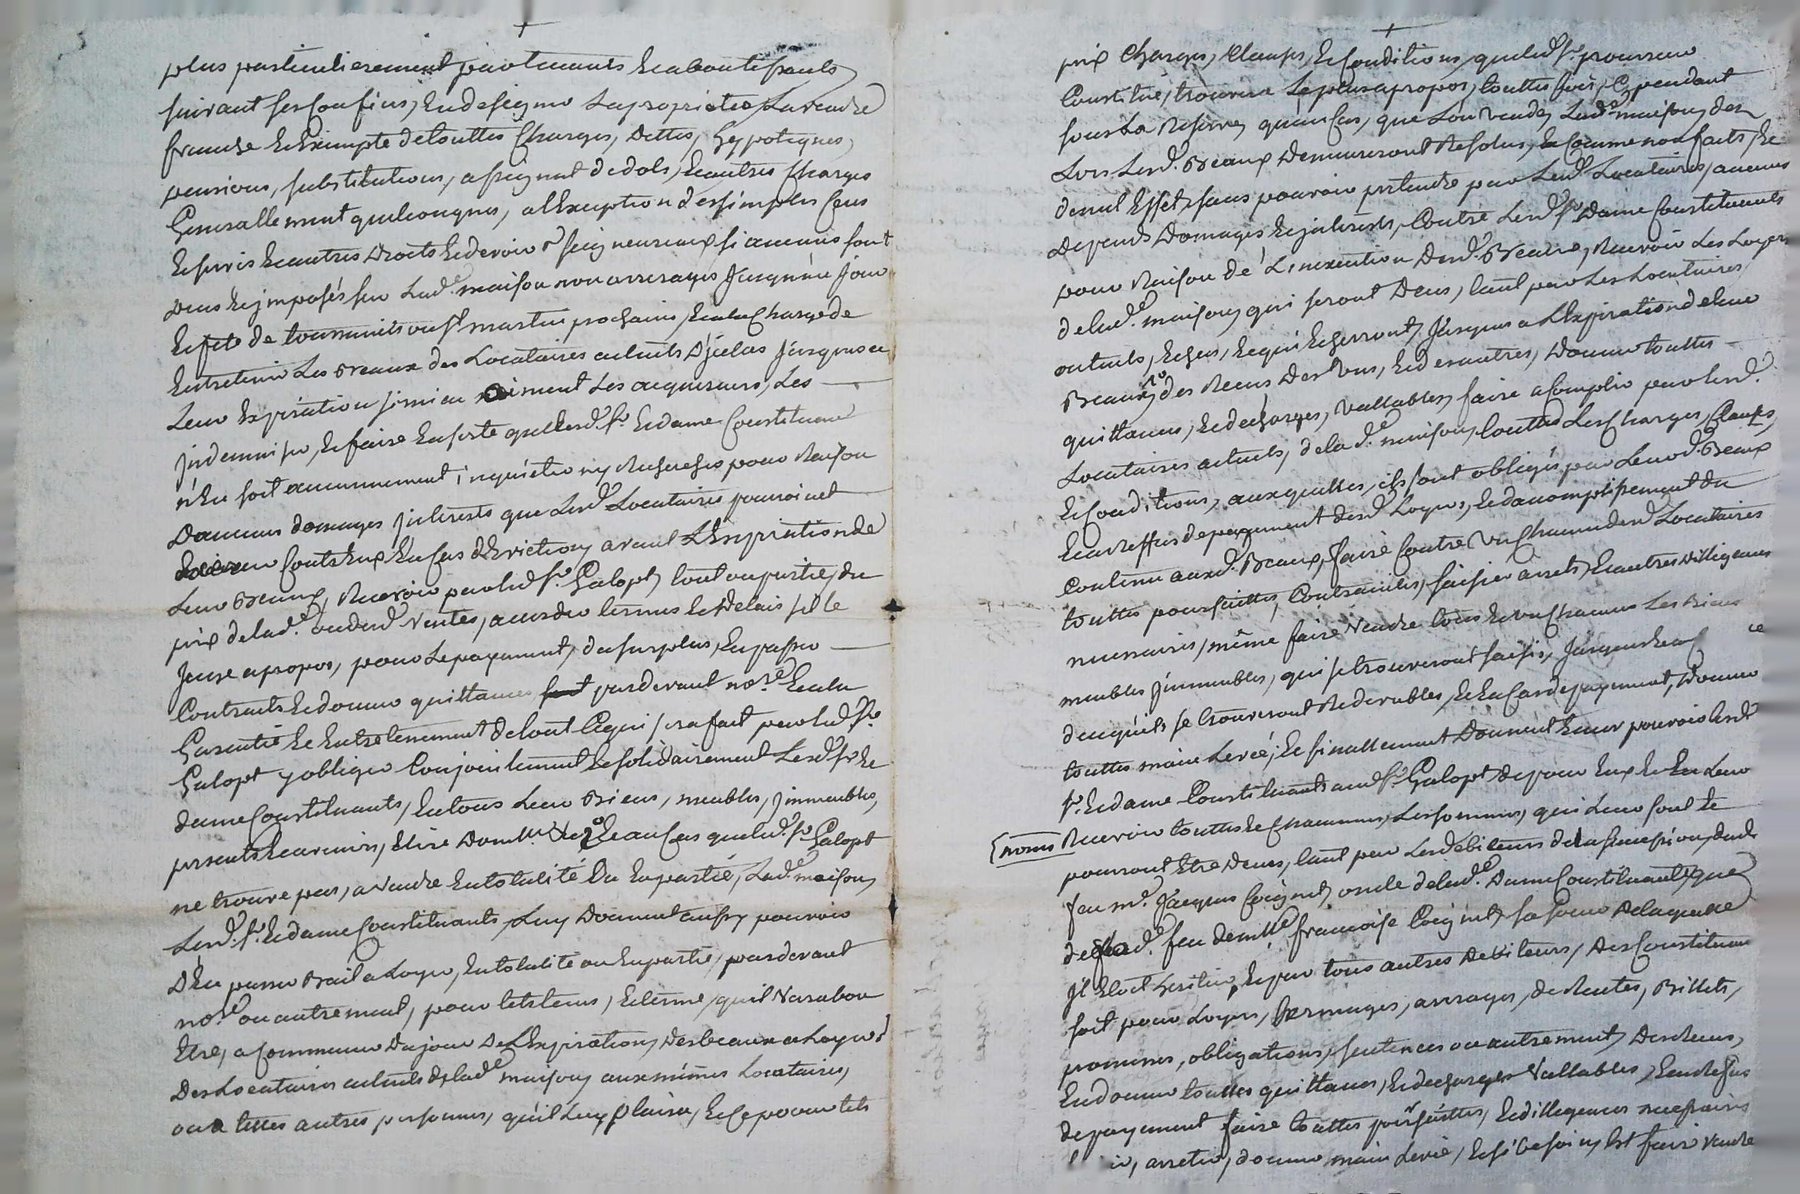 plus particulierement par tenants et aboutissants
suivant ses confins, en designer la proprieté, la vendre
franche et Exempte de touttes Charges, dettes, hypoteques,
pensions, substitutions, assignat de dots, et autres Charges
Generallement quelconques, a l'Exception des simples Cens
et servis et autres droits et devoirs seigneuriaux si aucuns sont
deus et jmposés sur lad.e maison non arreragés jusqu'au jour
et fete de toussaints ou st martin prochain, et a la Charge de
Entretenir les Beaux des Locataires actuels d'jcelas jusques a
leur Expiration si mieux naiment les acquereurs, les
jndemniser, et faire en sorte que lesd. sr. et dame Constituans
n'en soit aucunnement inquietés ny Recherchés pour Raison
d'aucuns domages jnterests que lesd. Locataires pourroient
avoir contr'Eux En Cas d'Eviction avant l'Expiration de
leur Beaux, Recevoir par led. sr. Galopt tout ou partie, du
prix de lad.e ou desd. ventes, accorder termes et delais s'il le
juge apropos, pour le payement, du surplus, En passer
Contrats et donner quittances par devant no.re et a la
Garentie et Entretenement de tout ce qui sera fait par led. sr.
Galopt y obliger Conjointement et solidairement lesd. sr. et
dame Constituants, et tous leur Biens, meubles, jmmeubles,
presents et avenirs, Elire dom.lle et au Cas que led. sr. Galopt
ne trouve pas, a vendre En totalité ou En partie, lad.e maison
Lesd. sr. et dame Constituants, luy donnent aussy pouvoir
d'En passer Bail a Loyer, En totalité ou En partie, par devant
no.re ou autrement, pour tels tems, et terme, qu'il verra bon
Etre, a Commencer du jour de l'Expiration des beaux a Loyer
des Locataires actuels de lad.e maison, aux mêmes Locataires,
ou a telles autres personnes, qu'il luy plaira, et ce pour tels
prix Charges, Clauses, et Conditions, que led. sr. procureur
Constitué, trouvera le plus apropos, touttes fois, Cependant
sous la Reserve, qu'en Cas, que l'on vende, lad.e maison, des
Lors lesd. Beaux demeureront Resolus, et Comme non faits, et
de nul Effet, sans pouvoir pretendre par lesd. Locataires, aucuns
depens domages et jnterests, Contre lesd. sr. dame Constituants
pour Raison de L'inexecution desd. Beaux, Recevoir les Loyers
de lad.e maison, qui seront deus, tant par les Locataires
actuels, Echeus, et qui Echerront, jusques a l'Expiration de leur
Beaux, des Receus desd. uns, et des autres, donner touttes
quittances, et decharges, vallables, faire accomplir par lesd.
Locataires actuels, de lad.e maison, touttes les Charges, Clauses,
et Conditions, auxquelles, ils sont obligés par leurd. Beaux
et au reffus de payement desd. Loyers, et d'accomplissement du
Contenu auxd. Beaux, faire Contre un Chacun desd. Locataires
touttes poursuittes, Contraintes, saisies arrets, et autres dilligences
necessaires, même faire vendre tous et un Chacuns les Biens
meubles jmmeubles, qui se trouveront saisis, jusques
ce
de ce qu'ils se trouveront Redevables, et En Cas de payement, donner
touttes main levée, et finallement donnent Encor pouvoir lesd.
sr. et dame Constituants aud. sr. Galopt de pour Eux et En leur
noms Recevoir touttes et Chacunnes, les sommes, qui leur sont et
pourront Etre deues, tant par les debiteurs de la succession, dud.
feu mr. Jacques Coignet, oncle de lad.e dame Constituante, que
de lad.e feu dem.lle françoise Coignet, sa soeur de laquelle
jl Etoit heritier, et par tous autres debiteurs, des Constituans
soit pour Loyers, fermages, arrerages, de Rentes, Billets,
promesses, obligations, sentences ou autrement, des Receus,
En donner touttes quittances, et decharges vallables, et au refus
de payement faire touttes poursuittes, et dilligences necessaires
arreter, donner main levée, et s'il besoin, Est faire vendre